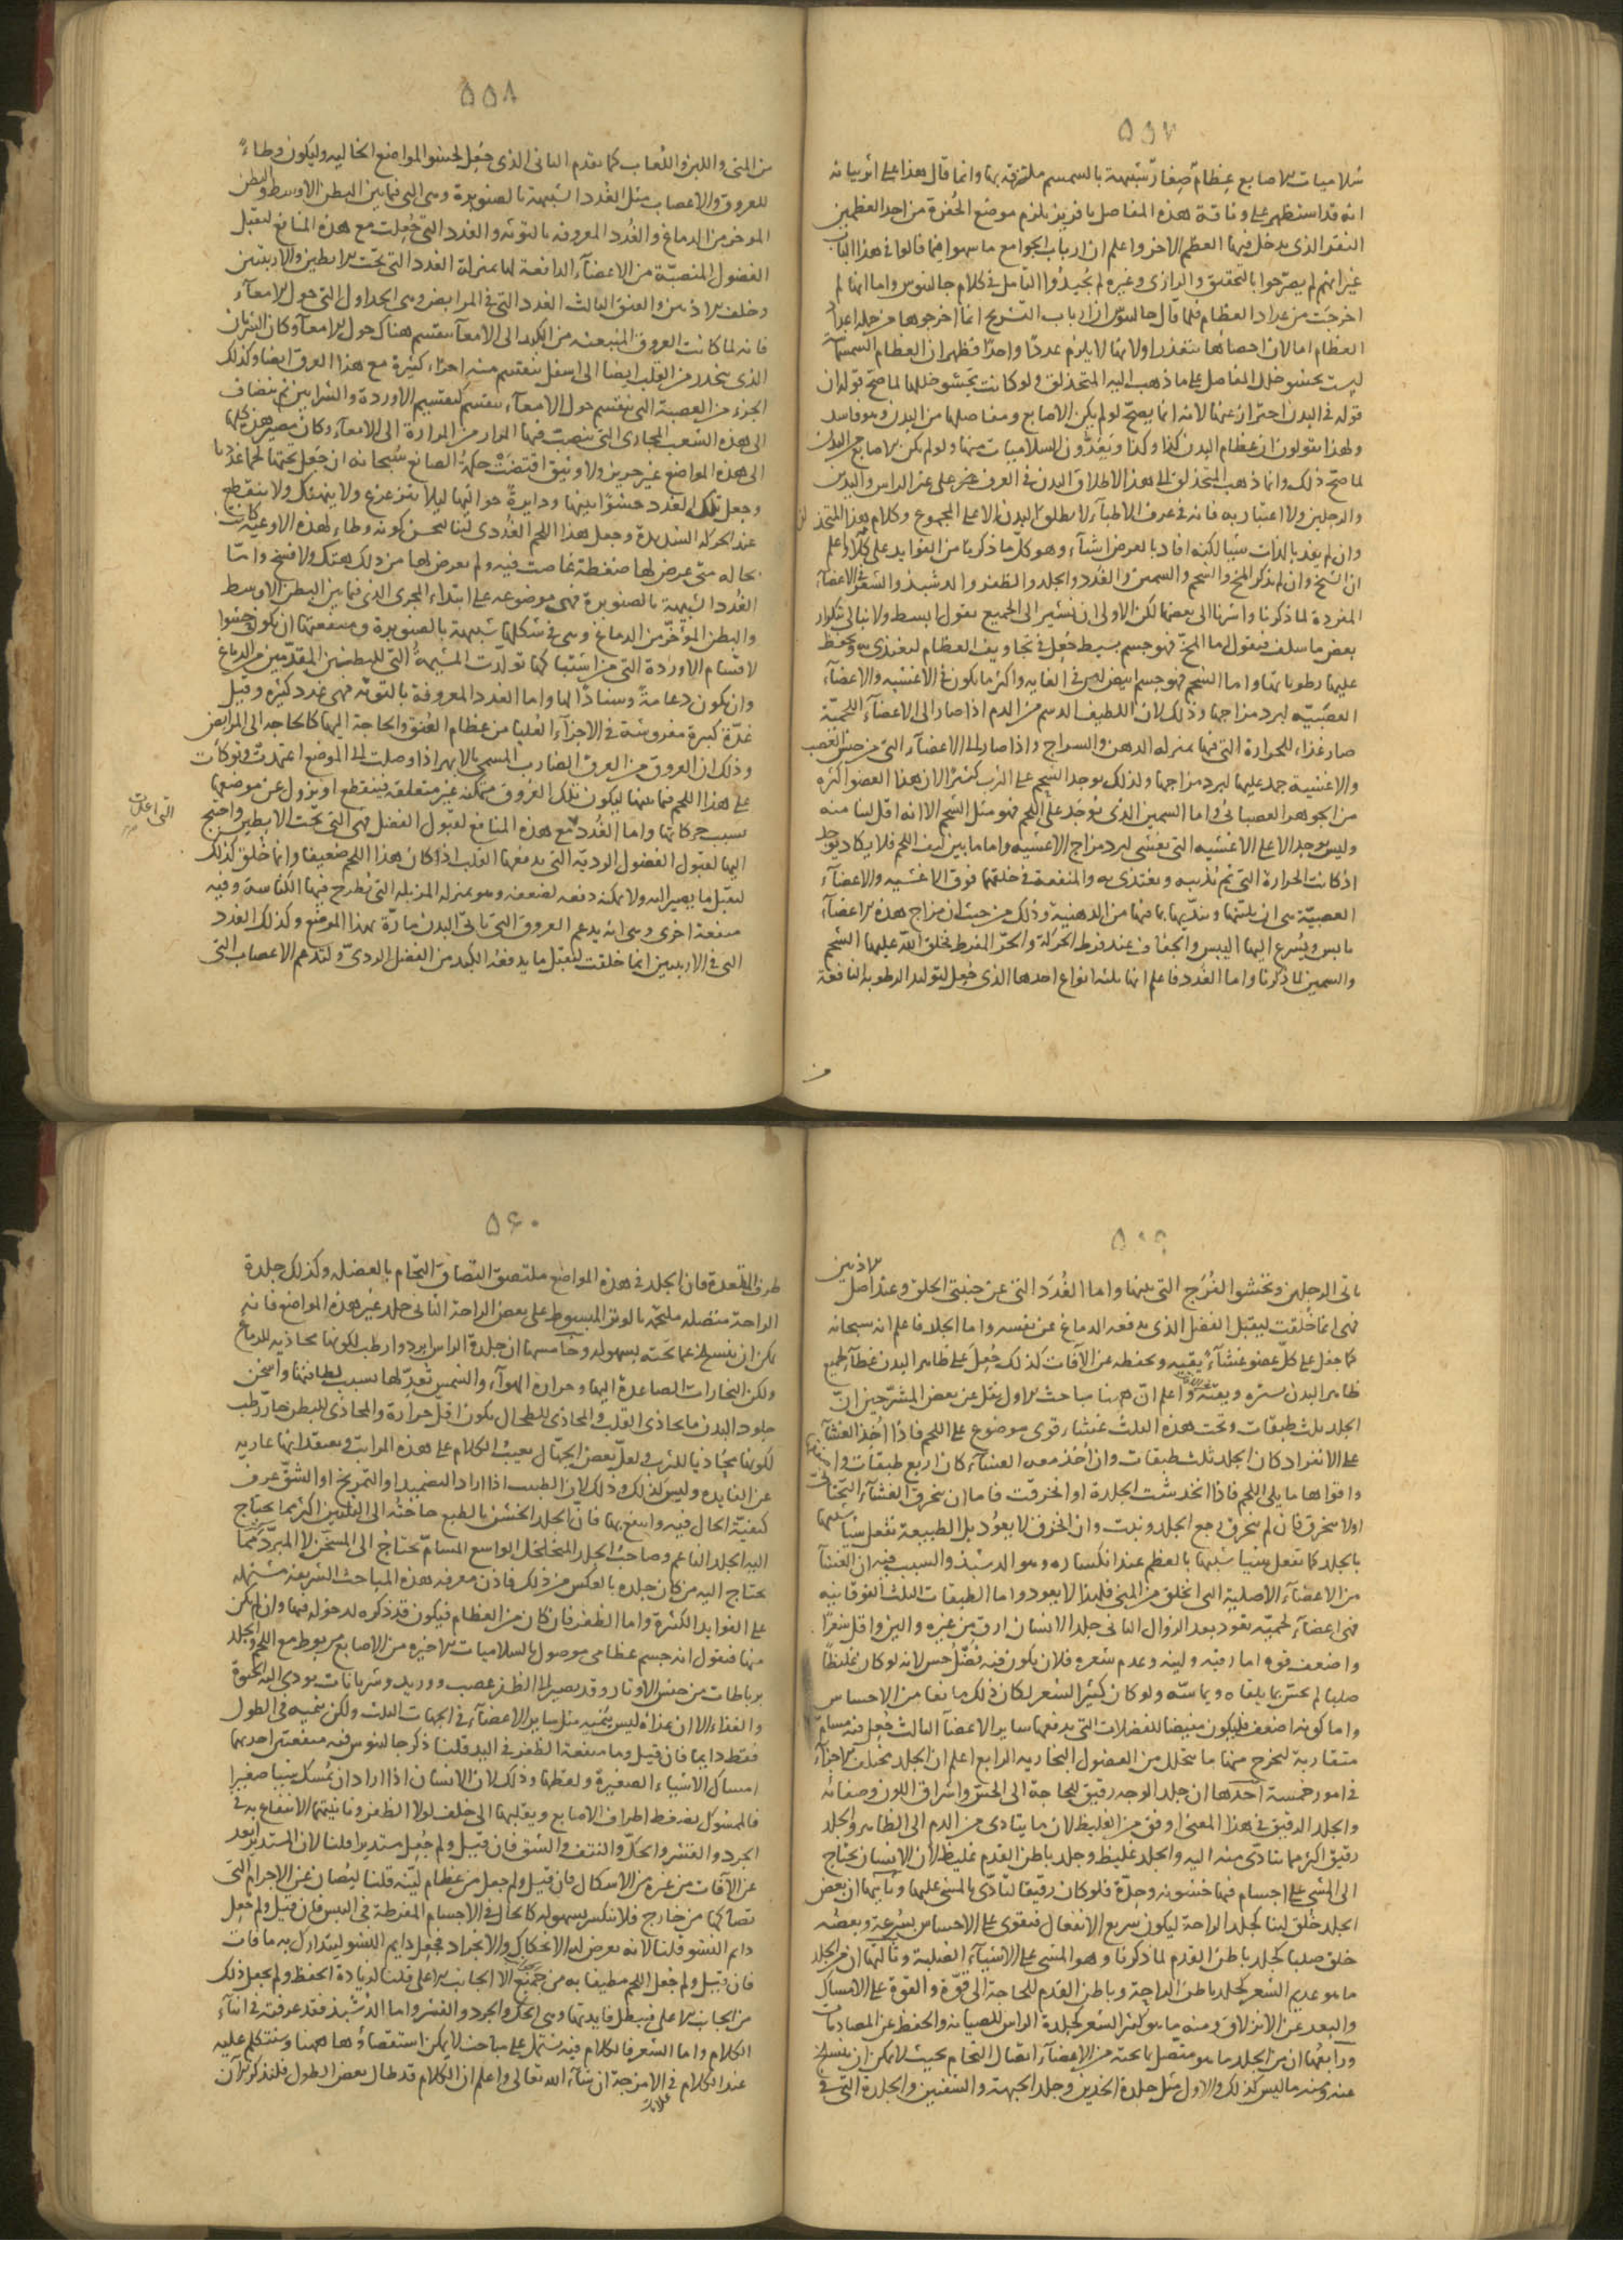 ٥٥٧
سُلاميات الاصابع عِظام صغار شبيهة بالسمسم ملتزقة بها وانما قال هذا على اثر بيانه
انه قد استظهر على وثاقة هذه المفاصل بافريز يلزم موضع الحُفرة من احد العظمين
النقر الذى يدخل فيها العظم الاخر واعلم ان ارباب الجوامع ما سهوا فيما قالوا فى هذا الباب
غير انهم لم يصرّحوا بالتحقيق والرازى وغيره لم يُجيدُوا التأمل فى كلام جالينوس واما انها لم
اخرجَت من عداد العظام فلما قال جالينوس ان ارباب التشريح انما اخرجوها من جملة اعداد
العظام اما لان احصاها متعذر اولا نها لا يلزم عددًا واحدًا فظهر ان العظام السمسمانية
ليست تحشو خلل المفاصل على ما ذهب اليه المتحذلق ولو كانت تحشو خللها لما صح قوله ان
قوله فى البدن احتراز عنها لانه انما يصحّ لو لم يكن الاصابع ومفاصلها من البدن وهو فاسد
ولهذا يقولون ان عظام البدن كذا وكذا ويَعُدُّون السلاميات منها ولو لم يكن الاصابع من البدن
لما صح ذلك وانما ذهب المتحذلق الى هذا لاطلاق البدن فى العرف على غير الراس واليدين
والرجلين ولا اعتبار به فانه فى عرف الاطباء لا يطلق البدن الا على المجموع وكلام هذا المتحذلق
وان لم يفد بالذات شيئا لكنه افاد بالعرض اشياء وهو كلّ ما ذكرنا من الفوايد على كلامه واعلم
ان الشيخ وان لم يذكر المخ والشحم والسمين والغُدد والجلد والظفر والدشبذ والشعر فى الاعضاء
المفردة لما ذكرنا واشرنا الى بعضها لكن الاولى ان نشير الى الجميع بقول ابسط ولا نبالى بتكرار
بعض ما سلف فنقول اما المخّ فهو جسم بسيط جُعل فى تجاويف العظام لتغتذى به وتحفظ
عليها رطوباتها واما الشحم فهو جسم ابيض لين فى الغايه واكثر ما يكون فى الاغشيه والاعضاء
العصَبيّه لبرد مزاجها وذلك لان اللطيف الدسم من الدم اذا صار الى الاعضاء اللحميّة
صار غذاء للحرارة التى فيها بمنزلة الدهن والسراج واذا صار الى الاعضاء التى من جنس العصب
والاغشية جمد عليها لبرد مزاجها ولذلك يوجد الشحم على الثرب كثيرًا لان هذا العضو اكثره
من الجوهر العصبانى واما السمين الذى يُوجَد على اللحم فهو مثل الشحم الا انه اقل لينا منه
وليس يوجد الا على الاغشيه التى تغشى لبرد مزاج الاغشيه واما ما بين ليف اللحم فلا يكاد يوجد
اذ كانت الحرارة التى ثم تذيبه وتغتذى به والمنفعة فى خلقتهما فوق الاغشيه والاعضاء
العصبيّة هى ان يلينها ويندّيها بما فيها من الدهنية وذلك من حيث ان مزاج هذه الاعضاء
يابس ويُسرع اليها اليبس والجفاف عند فرط الحركة والحرّ المفرط فخلق الله عليها الشحم
والسمين لما ذكرنا واما الغُدد فاعلم انها ثلثة انواع احدها الذى جُعل لتوليد الرطوبة النافعة
٥٥٨
من المنى واللبن واللُعاب كما تقدم الثانى الذى جُعل لحشو المواضع الخاليه وليكون وطاءً
للعروق والاعصاب مثل الغُدد الشبيهة بالصنوبرة وهى التى فيما بين البطن الاوسط والبطن
الموخر من الدماغ والغُدد المعروفه بالتوثه والغدد التى جُعلت مع هذه المنافع لتقبل
الفضول المنصبّة من الاعضاء الدافعة لها بمنزلة الغدد التى تحت الابطين والاربيتين
وخلف الاذنين والعنق الثالث الغدد التى فى المرابض وهى الجداول التى حول الامعاء
فانه لما كانت العروق المنبعثه من الكبد الى الامعاء تنقسم هناك حول الامعاء وكان الشريان
الذى ينحدر من القلب ايضا الى اسفل ينقسم منه اجزاء كثيرة مع هذا العرق ايضا وكذلك
الجزء من العصبة التى تنقسم حول الامعاء ينقسم كتقسيم الاوردة والشرايين ثم ينضاف
الى هذه الشعب المجارى التى ينصبّ فيها المرار من المرارة الى الامعاء وكان مصير هذه كلها
الى هذه المواضع غير حريز ولا وثيق اقتضَت حكمةُ الصانع سُبحانه ان جَعل تحتها لحما غدديّا
وجعل تلك الغدد حشوًا بينها ودايرةً حواليها ليلا يتزعزع ولا ينهتك ولا ينقطع
عند الحركة الشديدة وجعل هذا اللحم الغُددى لينا ليحسن كونه وطاء لهذه الاوعية كانت
بحاله متى عرض لها ضغطة غاصت فيه ولم يعرض لها من ذلك هتك ولا فسخ واما
الغُدد الشبيهة بالصنوبرة فهى موضوعه على ابتداء المجرى الذى فيما بين البطن الاوسط
والبطن المؤخّر من الدماغ وهى فى شكلها شبيهة بالصنوبرة ومنفعتها ان يكون حشوا
لاقسام الاوردة التى من اشتباكها تولدت المشيمةُ التى للبطنين المقدّمين من الدماغ
وان يكون دعامةً وسنادًا لها واما الغدد المعروفة بالتوثه فهى غدد كثيره وقيل
غدّة كبيرة مفروشة فى الاجزاء العُليا من عظام العُنق والحاجة اليها كالحاجه الى المرابض
وذلك ان العروق من العرق الضارب المسمى بالابهر اذا وصلت الى الموضع اعتمدت وتوكأت
على هذا اللحم فيما بينها ليكون تلك العُروق متمكنه غير متعلقة فينقطع او تزول عن موضعها
بسبب حركاتها واما الغُدد مع هذه المنافع لقبول الفضل فهى التى تحت الابطين واحتيج
التى اعدّت
اليها لقبول الفضول الرديّه التى يدفعها القلب اذ كان هذا اللحم ضعيفا وانما خُلق كذلك
ليقبل ما يصير اليه ولا يمكنه دفعه لضعفه وهو بمنزله المزبله التى يُطرح فيها الكُناسة وفيه
منفعة اخرى وهى انه يدعم العروق التى تاتى البدن مارّة بهذا الموضع وكذلك الغدد
التى فى الاربيتين انما خلقت لتقبل ما يدفعُه الكبد من الفضل الردىّ ولتدعم الاعصاب التى
٥٥٩
تاتى الرجلين وتحشوا الفُرَج التى بينها واما الغُدَد التى عن جنبتى الحلق وعند اصل
الاذنين
فهى انما خُلقت ليقبل الفضل الذى يدفعه الدماغ عن نفسه واما الجلد فاعلم انه سبحانه
كما جعل على كلّ عضو غشاءً يقيه ويحفظه عن الآفات كذلك جُعِلَ على ظاهر البدن غطاءً لجميع
ظاهر البدن يستره ويقيه واعلم انّ ههنا مباحث الاول نقل عن بعض المشرّحين انّ
الجلد ثلث طبقات وتحت هذه الثلث غشاء قوى موضوع على اللحم فاذا اُخِذ الغشاء
على الانفراد كان الجلد ثلث طبقات وان اُخذ معه الغشاء كان اربع طبقات
واقواها ما يلى اللحم فاذا انخدشت الجلدة او انخرقت فاما ان ينخرق الغشاء التحتانى
اولا ينخرق فان لم ينخرق رجع الجلد ونبت وان انخرق لا يعُود بل الطبيعة تفعل شيئا شبيها
بالجلد كما تفعل شيئا شبيها بالعظم عند انكساره وهو الدشبذ والسبب فيه ان الغشاء
من الاعضاء الاصلية التى انخلق من المنى فلهذا لا يعود واما الطبقات الثلث الفوقانيه
فهى اعضاء لحميّه تعود بعد الزوال الثانى جلد الانسان ارقّ من غيره والين واقل شعرًا
واضعف قوه اما رقته ولينه وعدم شعره فلان يكون فيه فضلُ حُس لانه لو كان غليظًا
صلبا لم يحسّ بما يلقاه ويماسّه ولو كان كثير الشعر لكان ذلك مانعا من الاحساس
واما كونه اضعف فليكون مفيضا للفضلات التى يدفعها ساير الاعضاء الثالث جُعل فيه مسامّ
متقاربة ليخرج منها ما يتحلل من الفضول البخاريه الرابع اعلم ان الجلد يختلف الاجزاء
فى امور خمسة احدها ان جلد الوجه رقيق للحاجة الى الحسّ واشراق اللون وصفائه
والجلد الرقيق فى هذا المعنى اوفق من الغليظ لان ما يتادى من الدم الى الظاهر والجلد
رقيق اكثر مما يتادّى منه اليه والجلد غليظ وجلد باطن القدم غليظ لان الانسان يحتاج
الى المشى على اجسام فيها خشونه وحِدّة فلو كان رقيقا لتأذّى بالمشى عليها وثانيها ان بعض
الجلد خُلق لينا كجلد الراحة ليكون سريع الانفعال فيقوى على الاحساس بسُرعة وبعضه
خلق صلبا كجلد باطن القدم لما ذكرنا وهو المشى على الاشياء الصلبة وثالثها ان من الجلد
ما هو عديم الشعر كجلد باطن الراحة وباطن القدم للحاجة الى قوّة والقوة على الامساك
والبعد عن الانزلاق ومنه ما هو كثير الشعر كجلدة الراس للصيانه والحفظ عن المصادمات
ورابعُها ان من الجلد ما هو متصل بما تحته من الاعضاء اتصال التحام بحيث لا يمكن ان ينسلخ
عنه ومنه ما ليس كذلك والاول مثل جلدة الخدين وجلد الجبهة والشفتين والجلدة التى فى
٥٦٠
طرف المقعدة فان الجلد فى هذه المواضع ملتصق التصاق التحام بالعضله وكذلك جلدة
الراحة متصله ملتحمة بالوتر المبسوط على بعض الراحة الثانى جلد غير هذه المواضع فانه
يمكن ان ينسلخ عما تحته بسهوله وخامسها ان جلدة الراس ابرد وارطب لكونها محاذيه للدماغ
ولكن البخارات الصاعدة اليها وحرارة الهواء والشمس تُعَدِّلها بسبب لطافتها واسخن
جلود البدن ما يحاذى القلب والمحاذى للطحال يكون اقلّ حرارة والمحاذى للبطن حارّ رطب
لكونها مُحاذيا للثرب ولعلّ بعض الجهّال يعيبُ الكلام على هذه المراتب ويعتقد انها عاريه
عن الفايده وليس كذلك وذلك لان الطبيب اذا اراد التضميد او التمريخ او الشقّ عرف
كيفيّة الحال فيه وانتفع بها فانّ الجلد الخشن بالطبع حاجتُه الى التليين اكثر مما يحتاج
اليه الجلد الناعم وصاحبُ الجلد المتخلخل الواسع المسامّ يحتاج الى المسخن لا المبرّد
يحتاج اليه من كان جلده بالعكس من ذلك فاذن معرفه هذه المباحث الشريفه مشتمله
على الفوايد الكثيرة واما الظفر فان كان من العظام فيكون قد ذكره لدخوله فيها وان لم يكن
منها فنقول انه جسم عظامى موصول بالسلاميات الاخيره من الاصابع مربوط مع اللحم والجلد
برباطات من جنس الاوتار وقد يصير الى الظفر عصب ووريد وشريانات يودى اليه الحيوة
والغذاء الا ان غذاه ليس ينميه مثل ساير الاعضاء فى الجهات الثلث ولكن ينميه فى الطول
فقط دايما فان قيل وما منفعة الظفر فى اليد قلنا ذكر جالينوس فيه منفعتين احديهما
امساك الاشياء الصغيرة ولقطها وذلك لان الانسان اذا اراد ان يمسك شيئا صغيرا
فالمسوك يضغط اطراف الاصابع ويقلبها الى خلف لولا الظفر وثانيتهما الانتفاع به فى
الجرد والقشر والحكّ والنتف والشق فان قيل ولم جُعل مستديرا قلنا لان المستدير ابعد
عن الآفات من غيره من الاشكال فان قيل ولم جعل من عظام لينه قلنا ليُصان عن الاجرام التى
تصاكها من خارج فلا ينكسر بسهوله كالحال فى الاجسام المفرطة فى اليبس فان قيل ولم جُعل
دايم النشو قلنا لانه يعرض له الانحكاك والانجراد فجعل دايم النشو ليتدارك به ما فات
فان قيل ولم جُعل اللحم مطيفا به من جميع الا الجانب الاعلى قلنا لزيادة الحفظ ولم يجعل ذلك
من الجانب الاعلى فيبطل فايدتها وهى الحك والجرد والقشر واما الدُشبذ فقد عرفته فى اثناء
الكلام واما الشعر فالكلام فيه يشتمل على مباحث لا يمكن استقصاؤها ههنا وسنتكلم عليه
عند الكلام فى الامزجة ان شاء الله تعالى واعلم ان الكلام قد طال بعض الطول فلنذكر الآن